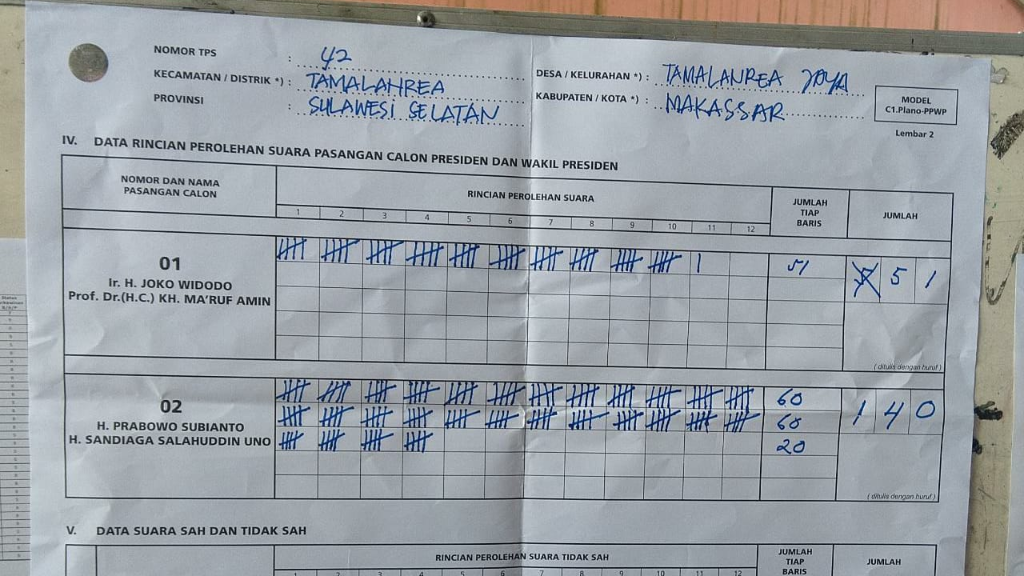 NOMOR TPS : 42
KECAMATAN / DISTRIK *) : TAMALANREA
PROVINSI : SULAWESI SELATAN
DESA / KELURAHAN *) : TAMALANREA JAYA
KABUPATEN / KOTA *) : MAKASSAR
MODEL
C1.Plano-PPWP
Lembar 2
IV. DATA RINCIAN PEROLEHAN SUARA PASANGAN CALON PRESIDEN DAN WAKIL PRESIDEN
NOMOR DAN NAMA
PASANGAN CALON
RINCIAN PEROLEHAN SUARA
1 2 3 4 5 6 7 8 9 10 11 12
JUMLAH
TIAP
BARIS
JUMLAH
01
Ir. H. JOKO WIDODO
Prof. Dr.(H.C.) KH. MA'RUF AMIN
51
5 1
( ditulis dengan huruf )
02
H. PRABOWO SUBIANTO
H. SANDIAGA SALAHUDDIN UNO
60
60
20
1 4 0
( ditulis dengan huruf )
V. DATA SUARA SAH DAN TIDAK SAH
RINCIAN PEROLEHAN SUARA TIDAK SAH
1 2 3 4 5 6 7 8 9 10 11 12
JUMLAH
TIAP
BARIS
JUMLAH